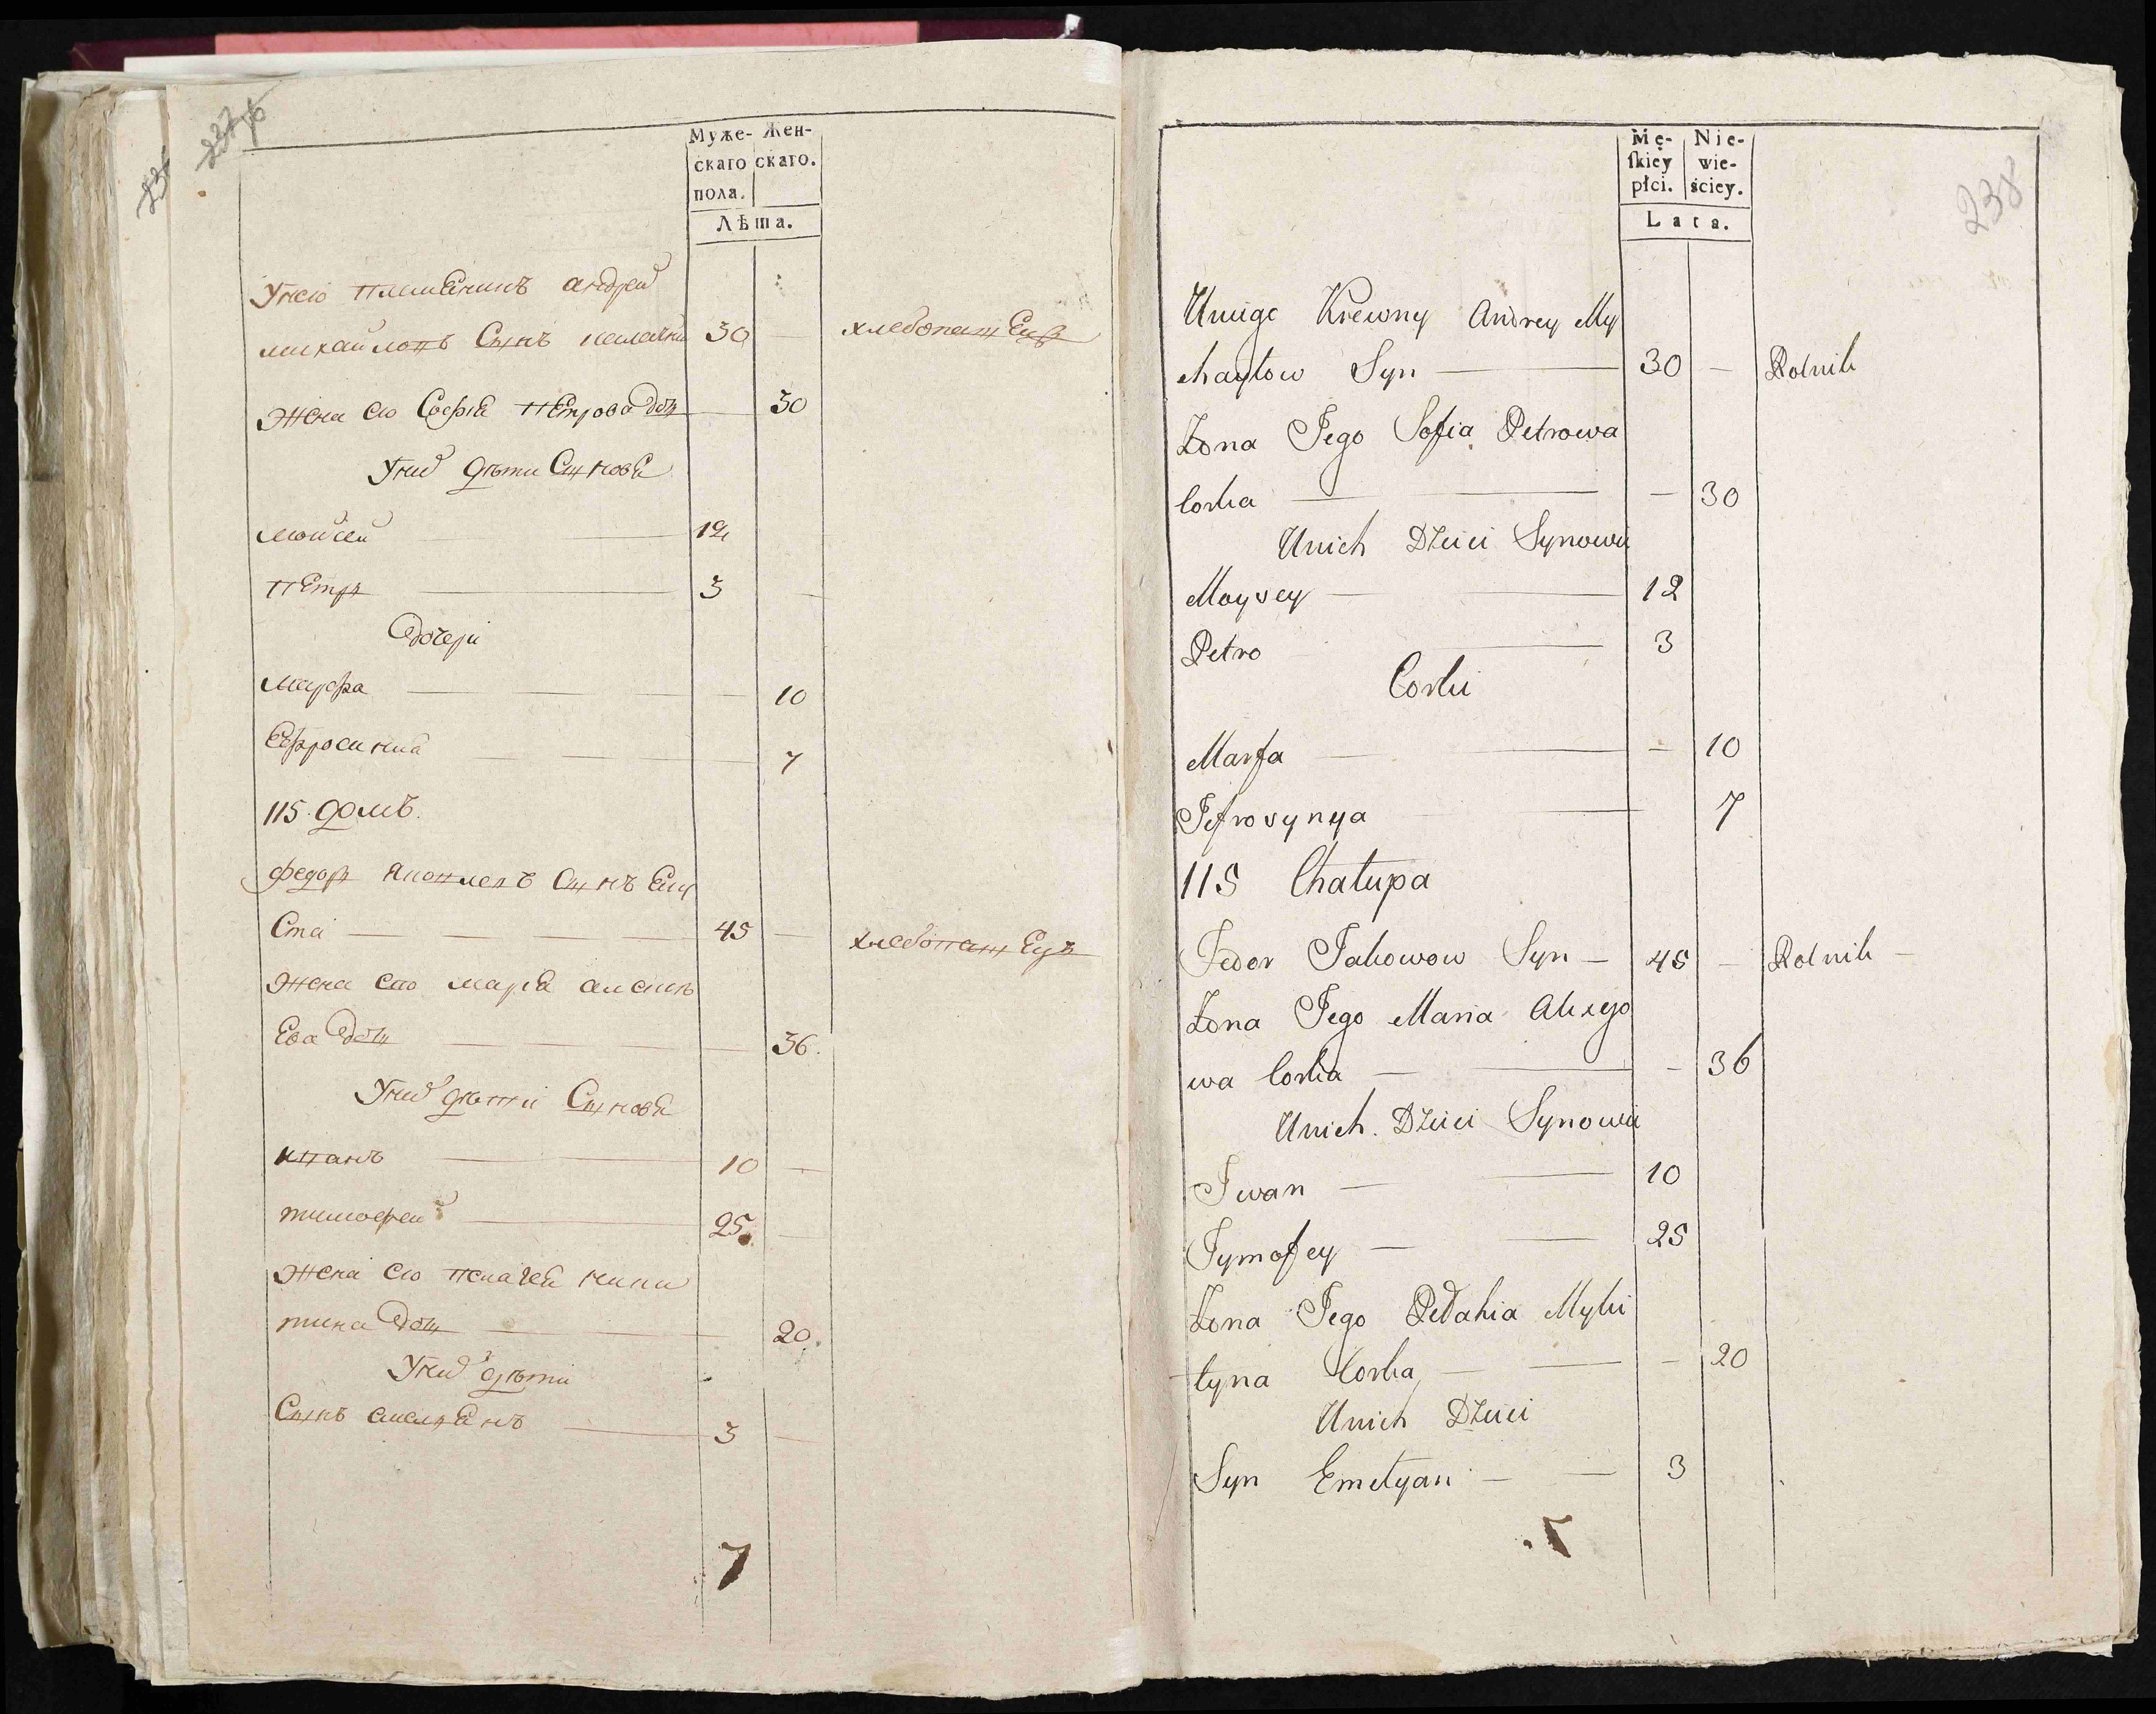 237 об
Муже- Жен-
скаго скаго.
пола.
Лѣта.
Унего племЕникъ андрей
михайловъ Сынъ 30 — хлебопашЕцъ
Жена его Софиа пЕтрова дочь — 30
Уних дѣти СыновЕ
Мойсей — 12
пЕтръ — 3 —
дочери
Марфа — 10
Ефросиниа — 7
115 домъ.
федоръ Яковлевъ Сынъ
— 45 — хлебопашЕцъ
Жена его мариа алексѣ
Ева дочь — 36.
Уних дѣти Синовѣ
иванъ — 10 —
тимофей — 25. —
Жена его пелагеа ники
тина дочь — 20.
Уних дѣти
Синъ емелиЕнъ — 3 —
7
238
Mę- Nie-
skiey wie-
płci. ściey.
Lata.
Uniego Krewny Andrey My
chayłow Syn — 30 — Rolnik
Żona Jego Sofia Petrowa
Corka — — 30
Unich Dzieci Synowie
Moysey — 12
Petro — 3
Corki
Marfa — — 10
Jefrosynya — 7
115 Chałupa
Fedor Jakowow Syn — 45 — Rolnik —
Żona Jego Maria Alexejo
wa Corka — — 36
Unich. Dzieci Synowie
Iwan — 10
Tymofey — 25
Żona Jego Pełahia Myki
tyna Corka — — 20
Unich Dzieci
Syn Emelyan — 3